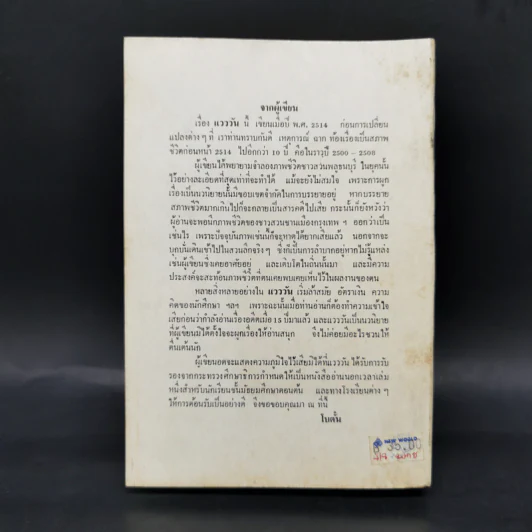 จากผู้เขียน
เรื่อง แวววัน นี้ เขียนเมื่อปี พ.ศ. 2514 ก่อนการเปลี่ยน
แปลงต่าง ๆ ที่ เราท่านทราบกันดี เหตุการณ์ ฉาก ท้องเรื่องเป็นสภาพ
ชีวิตก่อนหน้า 2514 ไปอีกกว่า 10 ปี คือในราวปี 2500 – 2506
ผู้เขียนได้พยายามจำลองภาพชีวิตชาวสวนฝั่งธนบุรี ในยุคนั้น
ไว้อย่างละเอียดที่สุดเท่าที่จะทำได้ แม้จะยังไม่สมใจ เพราะการผูก
เรื่องเป็นนวนิยายนั้นมีขอบเขตจำกัดในการบรรยายอยู่ หากบรรยาย
สภาพชีวิตมากเกินไปก็จะกลายเป็นสารคดีไปเสีย กระนั้นก็ยังหวังว่า
ผู้อ่านจะพอนึกภาพชีวิตของชาวสวนชานเมืองกรุงเทพ ฯ ออกว่าเป็น
เช่นไร เพราะปัจจุบันภาพเช่นก็จะหาดูได้ยากเสียแล้ว นอกจากจะ
บุกบั่นเดินเข้าไปในสวนลึกจริงๆ ซึ่งก็เป็นการลำบากอยู่หากไม่รู้แหล่ง
เช่นผู้เขียนซึ่งเคยอาศัยอยู่ และเติบโตในถิ่นนั้นมา และมีความ
ประสงค์จะสะท้อนภาพชีวิตที่ตนเคยพบเคยเห็นไว้ในผลงานของตน
หลายสิ่งหลายอย่างใน แวววัน เริ่มล้าสมัย อัตราเงิน ความ
คิดของนักศึกษา ฯลฯ เพราะฉะนั้นเมื่อท่านอ่านก็ต้องทำความเข้าใจ
เสียก่อนว่ากำลังอ่านเรื่องอดีตเมื่อ 15 ปีมาแล้ว และแวววันเป็นนวนิยาย
ที่ผู้เขียนมิได้ตั้งใจจะผูกเรื่องให้อ่านสนุก จึงไม่ค่อยมีอะไรชวนให้
ตื่นเต้นนัก
ผู้เขียนอดจะแสดงความภูมิใจไว้เสียมิได้ที่แวววัน ได้รับการรับ
รองจากกระทรวงศึกษาธิการกำหนดให้เป็นหนังสืออ่านนอกเวลาเล่ม
หนึ่งสำหรับนักเรียนชั้นมัธยมศึกษาตอนต้น และทางโรงเรียนต่าง ๆ
ให้การต้อนรับเป็นอย่างดี จึงขอขอบคุณมา ณ ที่นี้
โบตั๋น
NEW WORLD
฿ 35.00